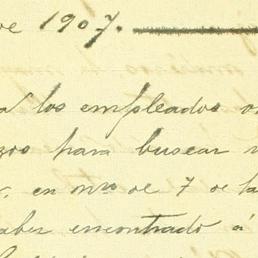 de 1907.
a los empleados
zos para buscar
en nros de 7 de la
aber encontrado á